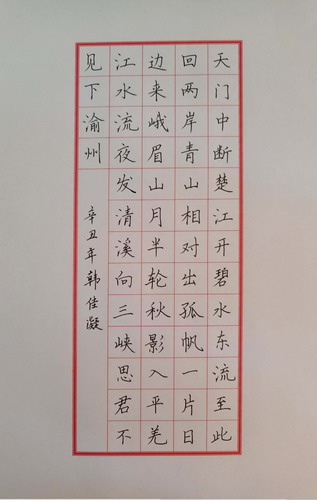 天门中断楚江开碧水东流至此
回两岸青山相对出孤帆一片日
边来峨眉山月半轮秋影入平羌
江水流夜发清溪向三峡思君不
见下渝州
辛丑年韩佳凝